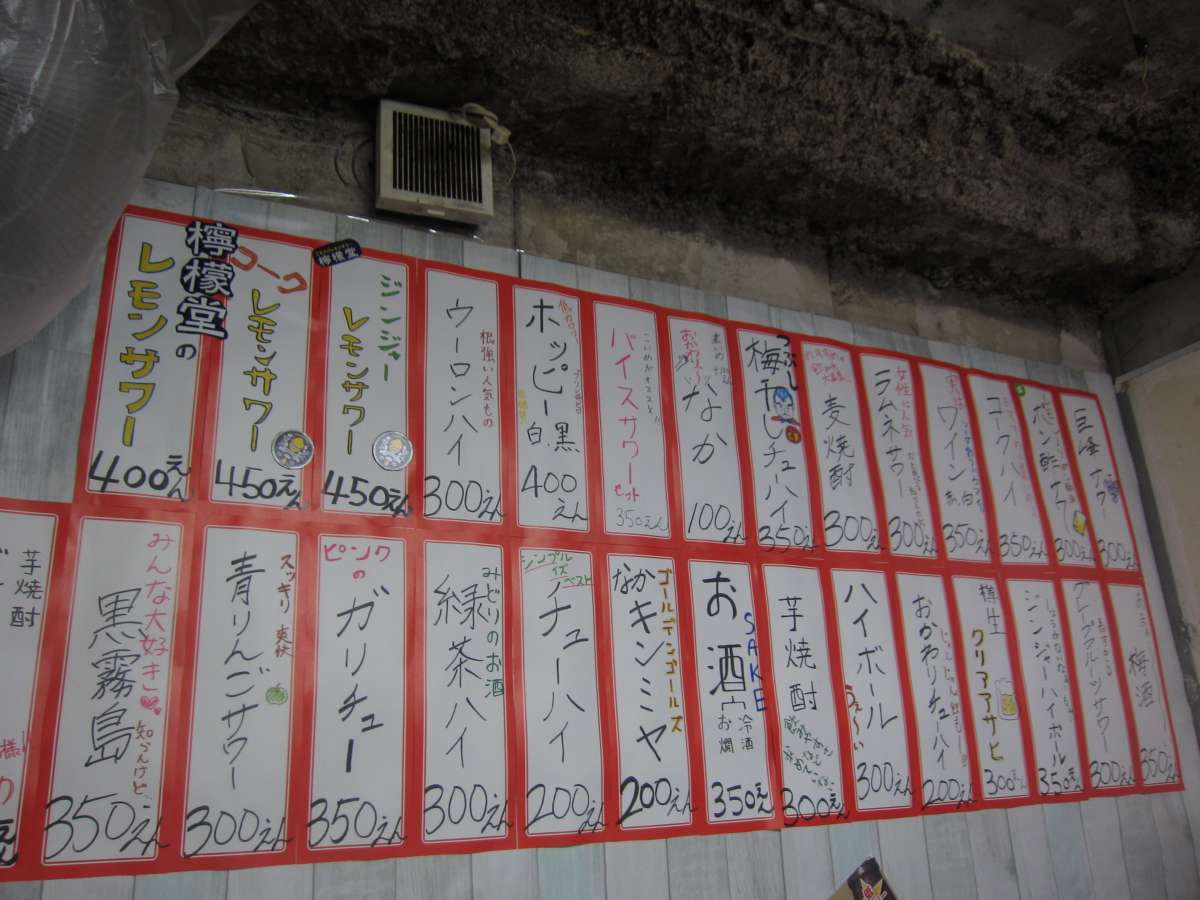 檸檬堂の
レモンサワー
400えん
コーク
レモンサワー
450えん
檸檬堂
ジンジャー
レモンサワー
450えん
根強い人気もの
ウーロンハイ
300えん
ホッピー
黒
白
400えん
こいめがオススメ!!
バイスサワー
セット
350えん
なか
100えん
つぶし
梅干しチューハイ
350えん
麦焼酎
300えん
女性に人気
ラムネサワー
300えん
ワイン
赤
白
350えん
コークハイ
350えん
300えん
巨峰サワー
300えん
芋焼酎
みんな大好き
黒霧島
知らんけど、
350えん
スッキリ
青りんごサワー
300えん
ピンクの
ガリチュー
350えん
みどりのお酒
緑茶ハイ
300えん
シンプル
イズ
ベスト
チューハイ
200えん
ゴールデンゴールズ
なかキンミヤ
200えん
SAKE
お酒
冷酒
お燗
350えん
芋焼酎
300えん
ハイボール
うぇ〜い
300えん
おかわりチューハイ
200えん
樽生
クリアアサヒ
300えん
ジンジャーハイボール
350えん
グレープフルーツサワー
300えん
梅酒
350えん